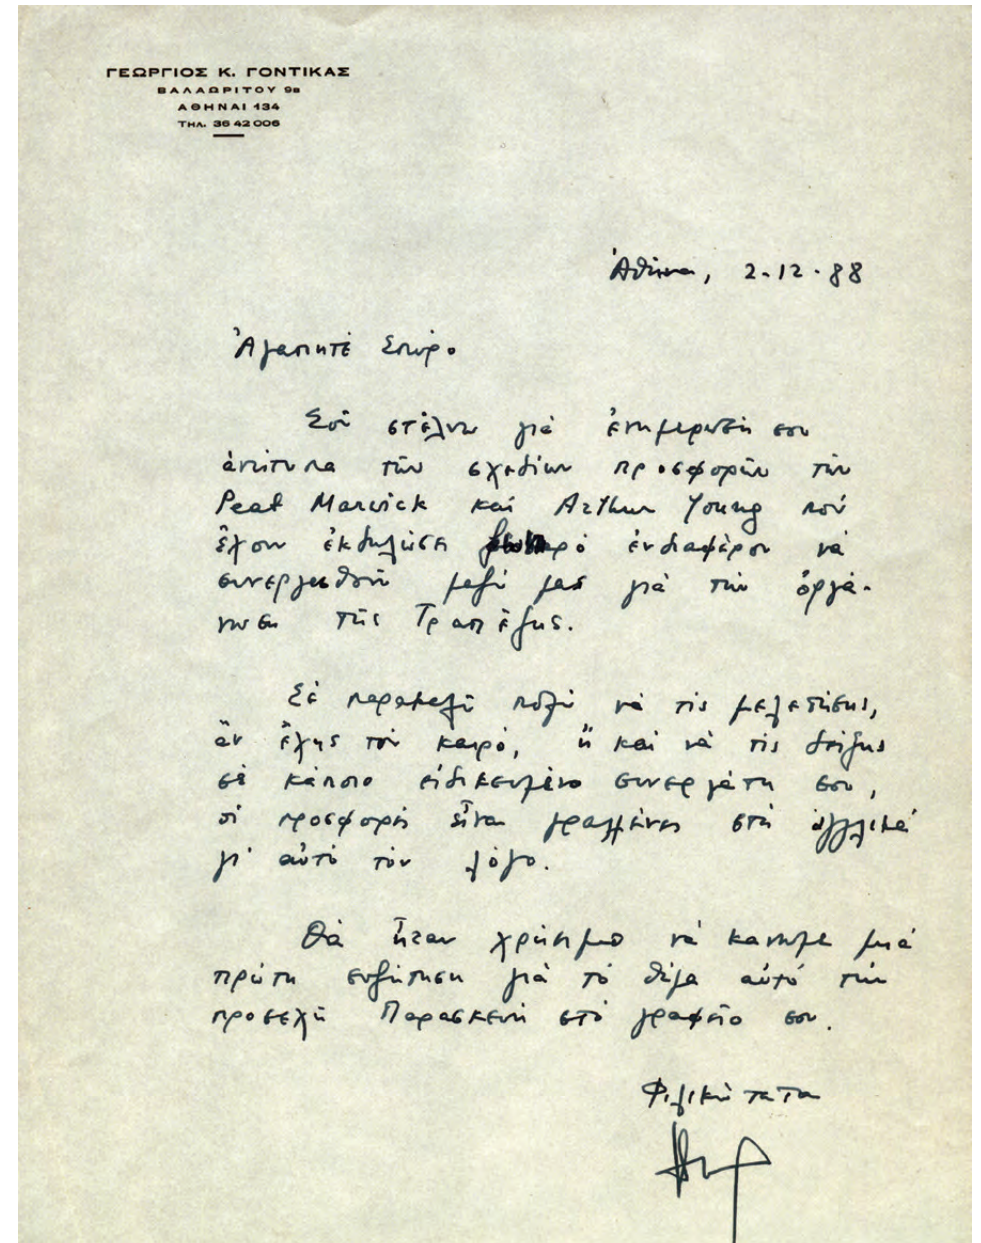 ΓΕΩΡΓΙΟΣ Κ. ΓΟΝΤΙΚΑΣ
ΒΑΛΑΩΡΙΤΟΥ 9α
ΑΘΗΝΑΙ 134
ΤΗΛ. 36 42 006
Ἀθήνα, 2-12-88
Ἀγαπητέ Σπύρο
Σοῦ στέλνω γιά ἐνημέρωσή σου
ἀντίτυπα τῶν σχεδίων προσφορῶν τῶν
Peat Marwick καί Arthur Young πού
ἔχουν ἐκδηλώσει ἐνδιαφέρον νά
συνεργασθοῦν μαζί μας γιά τήν ὀργά-
νωση τῆς Τραπέζης.
Σέ παρακαλῶ πολύ νά τίς μελετήσης,
ἄν ἔχης τόν καιρό, ἤ καί νά τίς δείξης
σέ κάποιο εἰδικευμένο συνεργάτη σου,
οἱ προσφορές εἶναι γραμμένες στά ἀγγλικά
γι' αὐτό τόν λόγο.
Θά ἦταν χρήσιμο νά κάνωμε μιά
πρώτη συζήτηση γιά τό θέμα αὐτό τήν
προσεχῆ Παρασκευή στό γραφεῖο σου.
Φιλικώτατα